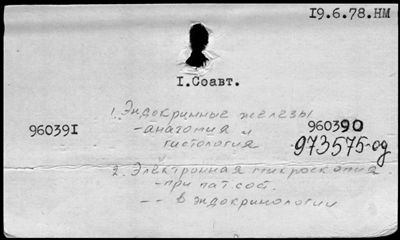 I9.6.78.НМ
I.Соавт.
1. Эндокринные железы
- анатомия и
960391
960390
гистология
973575-од
2. Электронная микроскопия
- при пат. сост.
- - в эндокринологии